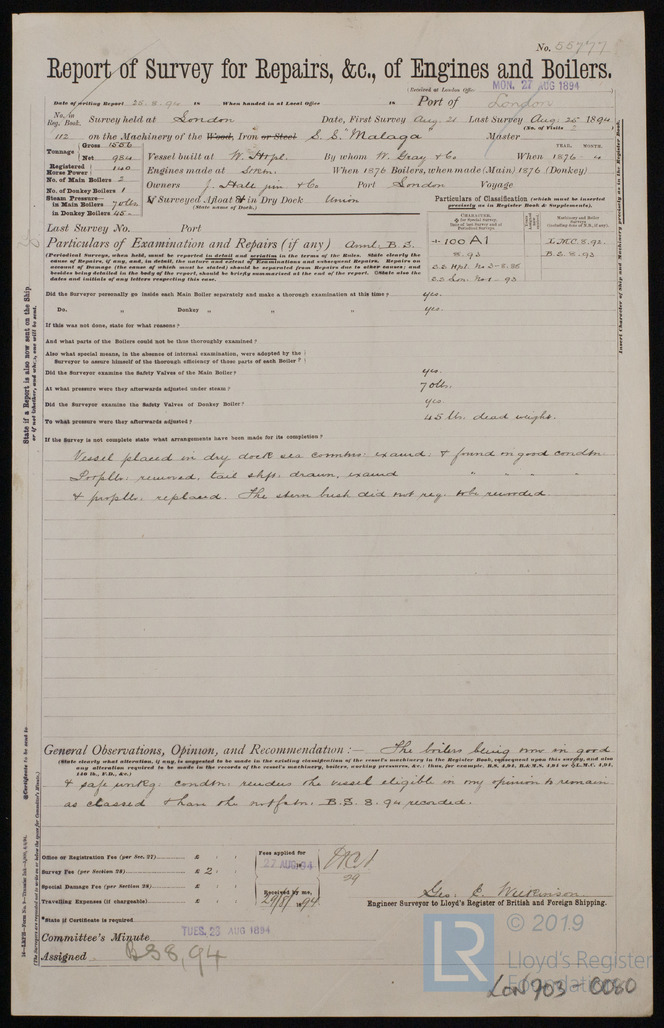 No. 55777
Report of Survey for Repairs, &c., of Engines and Boilers.
(Received at London Office MON. 27 AUG 1894 )
Date of writing Report 25.8.94 18 When handed in at Local Office 18 Port of London
No. in Reg. Book. Survey held at London Date, First Survey Aug. 21 Last Survey Aug: 25 1894
(No. of Visits 2 )
112 on the Machinery of the Wood, Iron or Steel S.S. "Malaga" Master
Tonnage Gross 1556 Net 984
Vessel built at W. Htpl. By whom W. Gray & Co When 1876 - 4
YEAR. MONTH.
Registered Horse Power 140
Engines made at When 1876 Boilers, when made (Main) 1876 (Donkey)
No. of Main Boilers 2
No. of Donkey Boilers 1
Owners J. Hall jun & Co Port London Voyage
Steam Pressure— in Main Boilers 70 lbs
in Donkey Boilers 45 -
If Surveyed Afloat or in Dry Dock Union
(State name of Dock.)
Particulars of Classification (which must be inserted precisely as in Register Book & Supplements).
Last Survey No. Port
Particulars of Examination and Repairs (if any) Annl. B.S.
+ 100 A1
8.93
S.S. Htpl. No 3-8.88
S.S. Lon. No 1 - 93
L.M.C. 8.92
B.S. 8.93
(Periodical Surveys, when held, must be reported in detail and seriatim in the terms of the Rules. State clearly the cause of Repairs, if any, and, in detail, the nature and extent of Examinations and subsequent Repairs. Repairs on account of Damage (the cause of which must be stated) should be separated from Repairs due to other causes; and besides being detailed in the body of the report, should be briefly summarised at the end of the report. State also the dates and initials of any letters respecting this case.
Did the Surveyor personally go inside each Main Boiler separately and make a thorough examination at this time? yes.
Do. „ Donkey „ „ „ yes.
If this was not done, state for what reasons?
And what parts of the Boilers could not be thus thoroughly examined?
Also what special means, in the absence of internal examination, were adopted by the Surveyor to assure himself of the thorough efficiency of those parts of each Boiler?
Did the Surveyor examine the Safety Valves of the Main Boiler? yes.
At what pressure were they afterwards adjusted under steam? 70 lbs.
Did the Surveyor examine the Safety Valves of Donkey Boiler? yes.
To what pressure were they afterwards adjusted? 45 lbs. dead weight.
If the Survey is not complete state what arrangements have been made for its completion?
Vessel placed in dry dock sea connns: examd: & found in good condtn
Propller: removed, tail shft: drawn, examd " " " "
& propller: replaced. The stern bush did not req: to be rewooded.
General Observations, Opinion, and Recommendation :— The boilers being now in good
(State clearly what alteration, if any, is suggested to be made in the existing classification of the vessel's machinery in the Register Book, consequent upon this survey, and also any alteration required to be made in the records of the vessel's machinery, boilers, working pressures, &c.; thus, for example, B.S. 4,91, B.&M.S. 4,91 or L.M.C. 4,91, 140 lb., F.D., &c.)
& safe workg: condtn: renders the vessel eligible in my opinion to remain
as classed & have the notfctn: B.S. 8.94 recorded.
Office or Registration Fee (per Sec. 27) £
Survey Fee (per Section 28) £ 2 : :
Special Damage Fee (per Section 28) £
Travelling Expenses (if chargeable) £
Fees applied for
27 AUG 94
Received by me,
29/8/ 1894
Geo: E. Wilkinson
Engineer Surveyor to Lloyd's Register of British and Foreign Shipping.
*State if Certificate is required
Committee's Minute TUES. 28 AUG 1894
Assigned BS 8,94
State if a Report is also now sent on the Ship or if not whether, and when, one will be sent.
Insert Character of Ship and Machinery precisely as in the Register Book.
Certificate to be sent to
(The Surveyors are requested not to write on or below the space for Committee's Minute.)
LR © 2019
Lloyd's Register
Foundation
LON 903-0080